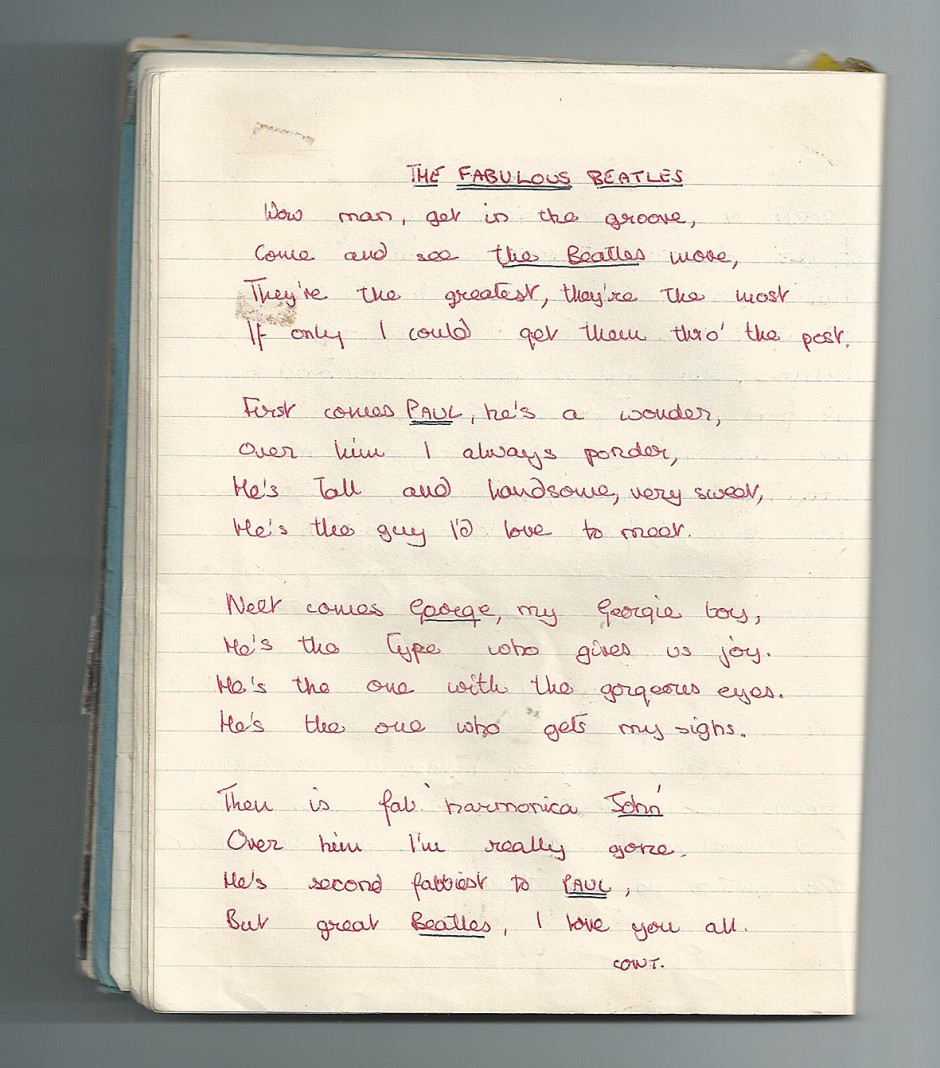 THE FABULOUS BEATLES
Wow man, get in the groove,
Come and see the Beatles move,
They're the greatest, they're the most
If only I could get them thro' the post.
First comes PAUL, he's a wonder,
Over him I always ponder,
He's Tall and handsome, very sweet,
He's the guy I'd love to meet.
Next comes George, my Georgie boy,
He's the Type who gives us joy.
He's the one with the gorgeous eyes.
He's the one who gets my sighs.
Then is fab' harmonica John'
Over him I'm really gone.
He's second fabbiest to PAUL,
But great Beatles, I love you all.
CONT.